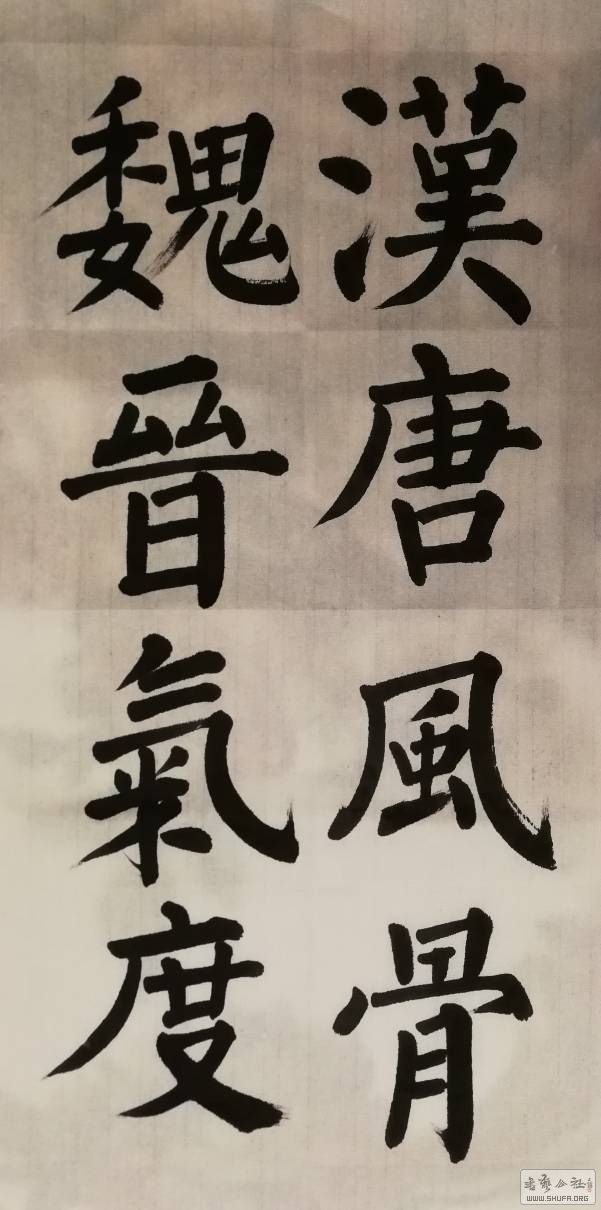 漢唐風骨
魏晉氣度
书艺公社
WWW.SHUFA.ORG